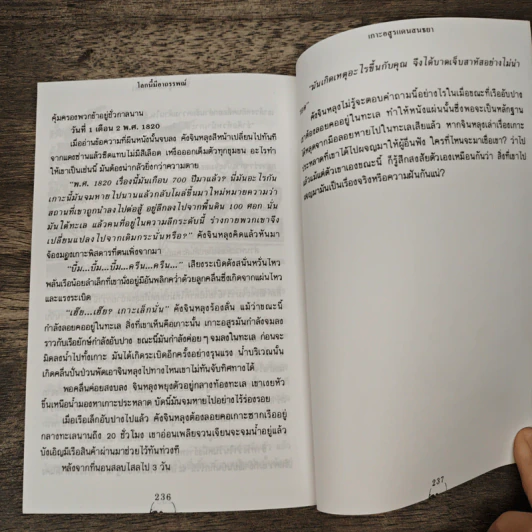 โลกนี้มีอาถรรพณ์
คุ้มครองพวกข้าอยู่ชั่วกาลนาน
วันที่ 1 เดือน 2 พ.ศ. 1820
เมื่ออ่านข้อความที่ผืนหนังนั้นจบลง คังจินหลุงสีหน้าเปลี่ยนไปทันที
จากแดงซ่านแล้วซีดแทบไม่มีสีเลือด เหงื่อออกเต็มตัวทุกขุมขน อะไรทำ
ให้เขาเป็นเช่นนี้ มันต้องน่ากลัวยิ่งกว่าความตาย
"พ.ศ. 1820 เรื่องนี้มันเกือบ 700 ปีมาแล้ว? นี่มันอะไรกัน
เกาะนี้มันจมหายไปนานแล้วกลับโผล่ขึ้นมาใหม่หมายความว่า
สถานที่เขาถูกนำลงไปต่อสู้ อยู่ลึกลงไปจากพื้นดิน 100 ศอก นั่น
มันใต้ทะเล แล้วคนที่อยู่ในความลึกระดับนี้ ร่างกายพวกเขาจึง
เปลี่ยนแปลงไปจากเดิมกระนั่นหรือ?" คังจินหลุงคิดแล้วหันมา
จ้องมองเกาะพิสดารที่ตนเพิ่งจากมา
"บึ้ม...บึ้ม...บึ้ม...ครืน...ครืน..." เสียงระเบิดดังสนั่นหวั่นไหว
พลันเรือน้อยลำเล็กที่เขานั่งอยู่มีอันพลิกคว่ำด้วยลูกคลื่นซึ่งเกิดจากแผ่นไหว
และแรงระเบิด
"เฮ้ย...เฮ้ย? เกาะเล็กนั่น" คังจินหลุงร้องลั่น แม้ว่าขณะนี้
กำลังลอยคออยู่ในทะเล สิ่งที่เขาเห็นคือเกาะนั้น เกาะอสูรมันกำลังจมลง
ราวกับเรือยักษ์กำลังอับปาง ขณะนี้มันกำลังค่อย ๆ จมลงในทะเล ก่อนจะ
มิดลงน้ำไปทั้งเกาะ มันได้เกิดระเบิดอีกครั้งอย่างรุนแรง น้ำบริเวณนั้น
เกิดคลื่นปั่นป่วนพัดเอาจินหลุงไปทางไหนเขาไม่ทันจับทิศทางได้
พอคลื่นค่อยสงบลง จินหลุงพยุงตัวอยู่กลางท้องทะเล เขาเงยหัว
ขึ้นเหนือน้ำมองหาเกาะประหลาด บัดนี้มันจมหายไปอย่างไร้ร่องรอย
เมื่อเรือเล็กอับปางไปแล้ว คังจินหลุงต้องลอยคอเกาะซากเรืออยู่
กลางทะเลนานถึง 20 ชั่วโมง เขาอ่อนเพลียจวนเจียนจะจมน้ำอยู่แล้ว
บังเอิญมีเรือสินค้าผ่านมาช่วยไว้ทันท่วงที
หลังจากที่นอนสลบไสลไป 3 วัน
236
เกาะอสูรแดนสนธยา
"มันเกิดเหตุอะไรขึ้นกับคุณ จึงได้บาดเจ็บสาหัสอย่างไม่น่า
คังจินหลุงไม่รู้จะตอบคำถามนี้อย่างไรในเมื่อขณะที่เรืออับปาง
ต้องลอยคออยู่ในทะเล ทำให้หนังแผ่นนั้นซึ่งพอจะเป็นหลักฐาน
หลุดจากมือลอยหายไปในทะเลเสียแล้ว หากจินหลุงเล่าเรื่องเกาะ
ประหลาดที่เขาได้ไปผจญมาให้ผู้อื่นฟัง ใครที่ไหนจะมาเชื่อเขา? ว่าไป
แล้วแม้แต่ตัวเขาเองขณะนี้ ก็รู้สึกสงสัยตัวเองเหมือนกันว่า สิ่งที่เขาไป
ผจญมามันเป็นเรื่องจริงหรือความฝันกันแน่?
237